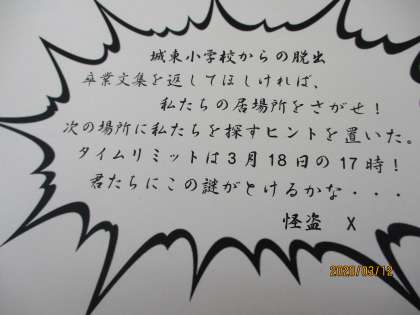 城東小学校からの脱出
卒業文集を返してほしければ、
私たちの居場所をさがせ！
次の場所に私たちを探すヒントを置いた。
タイムリミットは3月18日の17時！
君たちにこの謎がとけるかな・・・
怪盗 X
2020/03/12